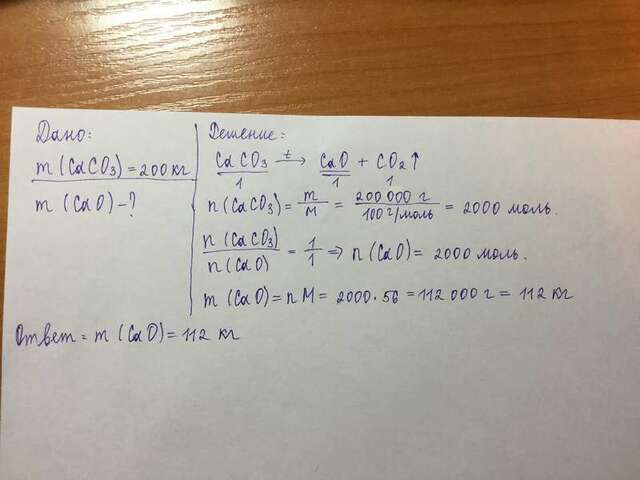 Дано:
m (CaCO₃) = 200 кг
m (CaO) - ?
Решение:
CaCO₃ t→ CaO + CO₂↑
1 1 1
n (CaCO₃) = m/M = 200 000 г/100 г/моль = 2000 моль.
n (CaCO₃)/n (CaO) = 1/1 ⇒ n (CaO) = 2000 моль.
m (CaO) = n M = 2000 · 56 = 112 000 г = 112 кг
Ответ = m (CaO) = 112 кг